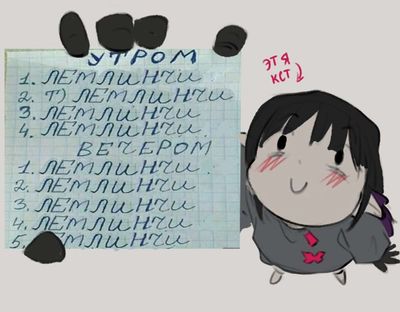 УТРОМ
1. ЛЕМЛИНЧИ
2. Т) ЛЕМЛИНЧИ
3. ЛЕМЛИНЧИ
4. ЛЕМЛИНЧИ.
ВЕЧЕРОМ
1. ЛЕМЛИНЧИ.
2. ЛЕМЛИНЧИ
3. ЛЕМЛИНЧИ
4. ЛЕМЛИНЧИ
5. ЛЕМЛИНЧИ
ЭТ Я
КСТ